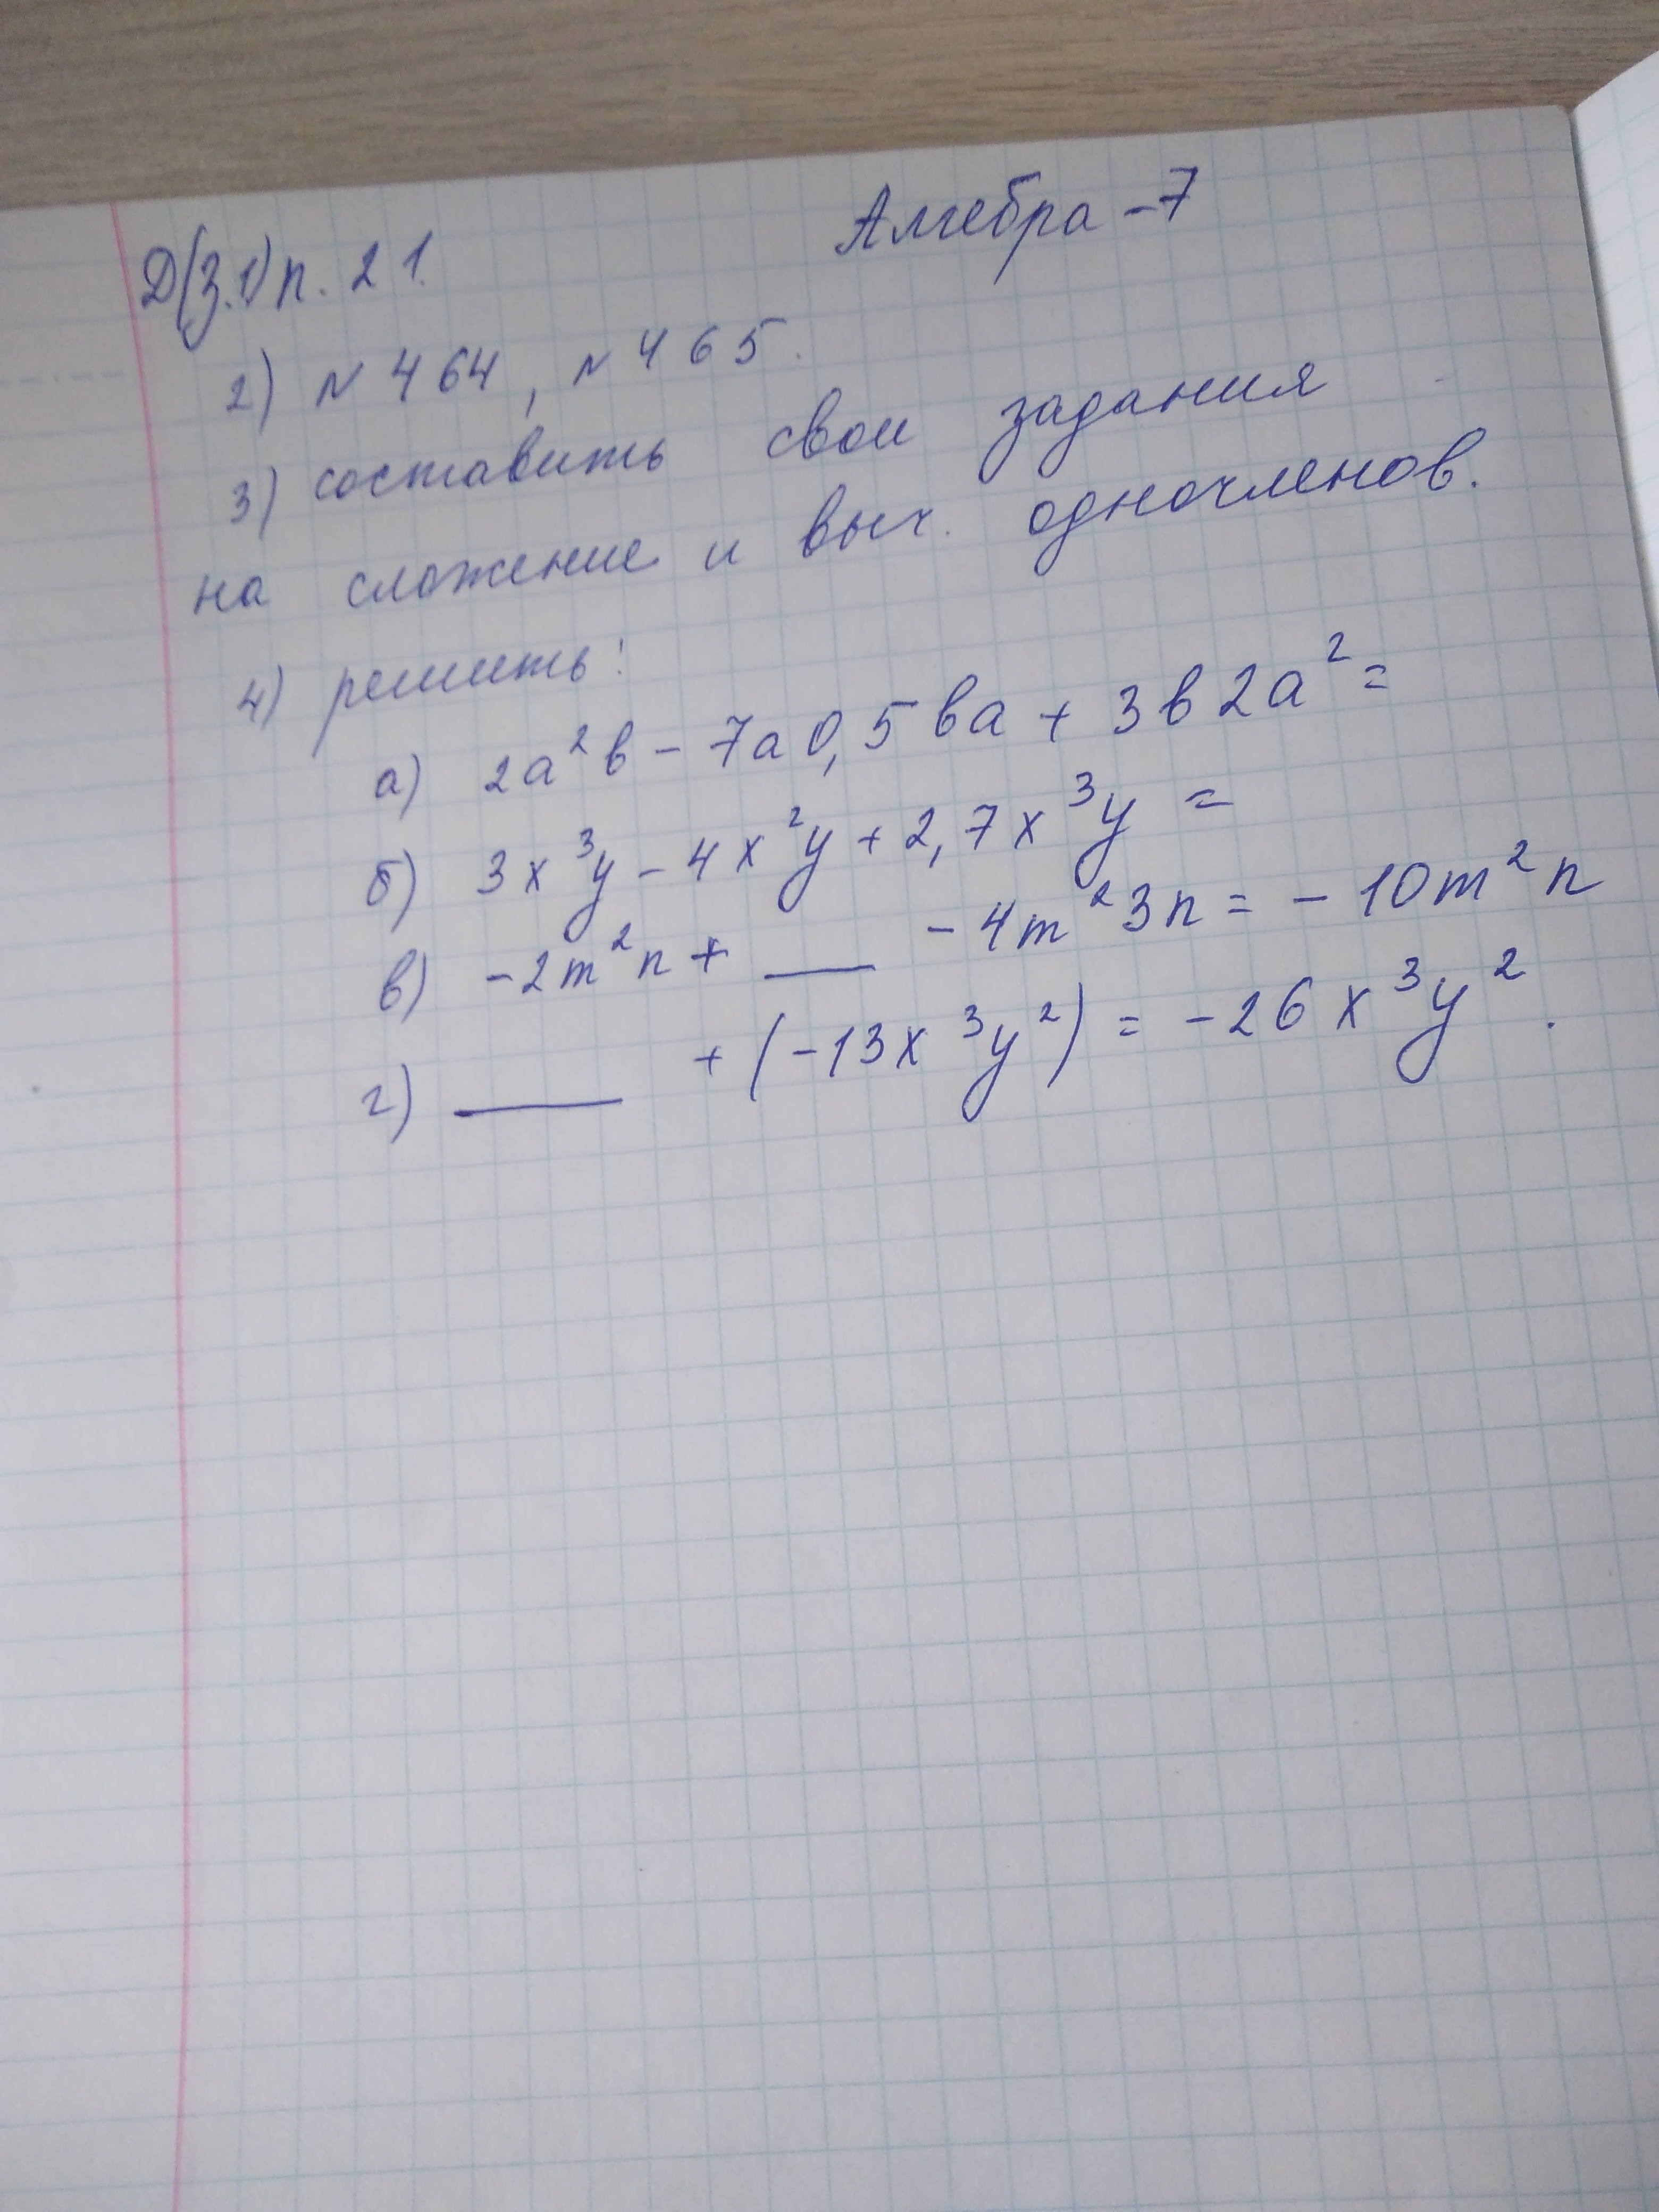 Алгебра - 7
Д(З.1) п. 21.
2) N 464, N 465.
3) составить свои задания
на сложение и выч. одночленов.
4) решить:
а) 2a²b - 7a0,5ba + 3b2a² =
б) 3x³y - 4x²y + 2,7x³y =
в) -2m²n + ___ - 4m²3n = - 10m²n
г) ___ + (-13x³y²) = - 26x³y².